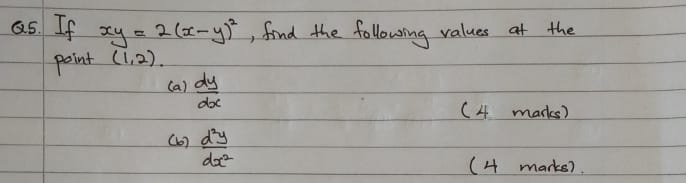 Q5. If xy = 2(x-y)², find the following values at the
point (1,2).
(a) dy/dx
(4 marks)
(b) d²y/dx²
(4 marks).